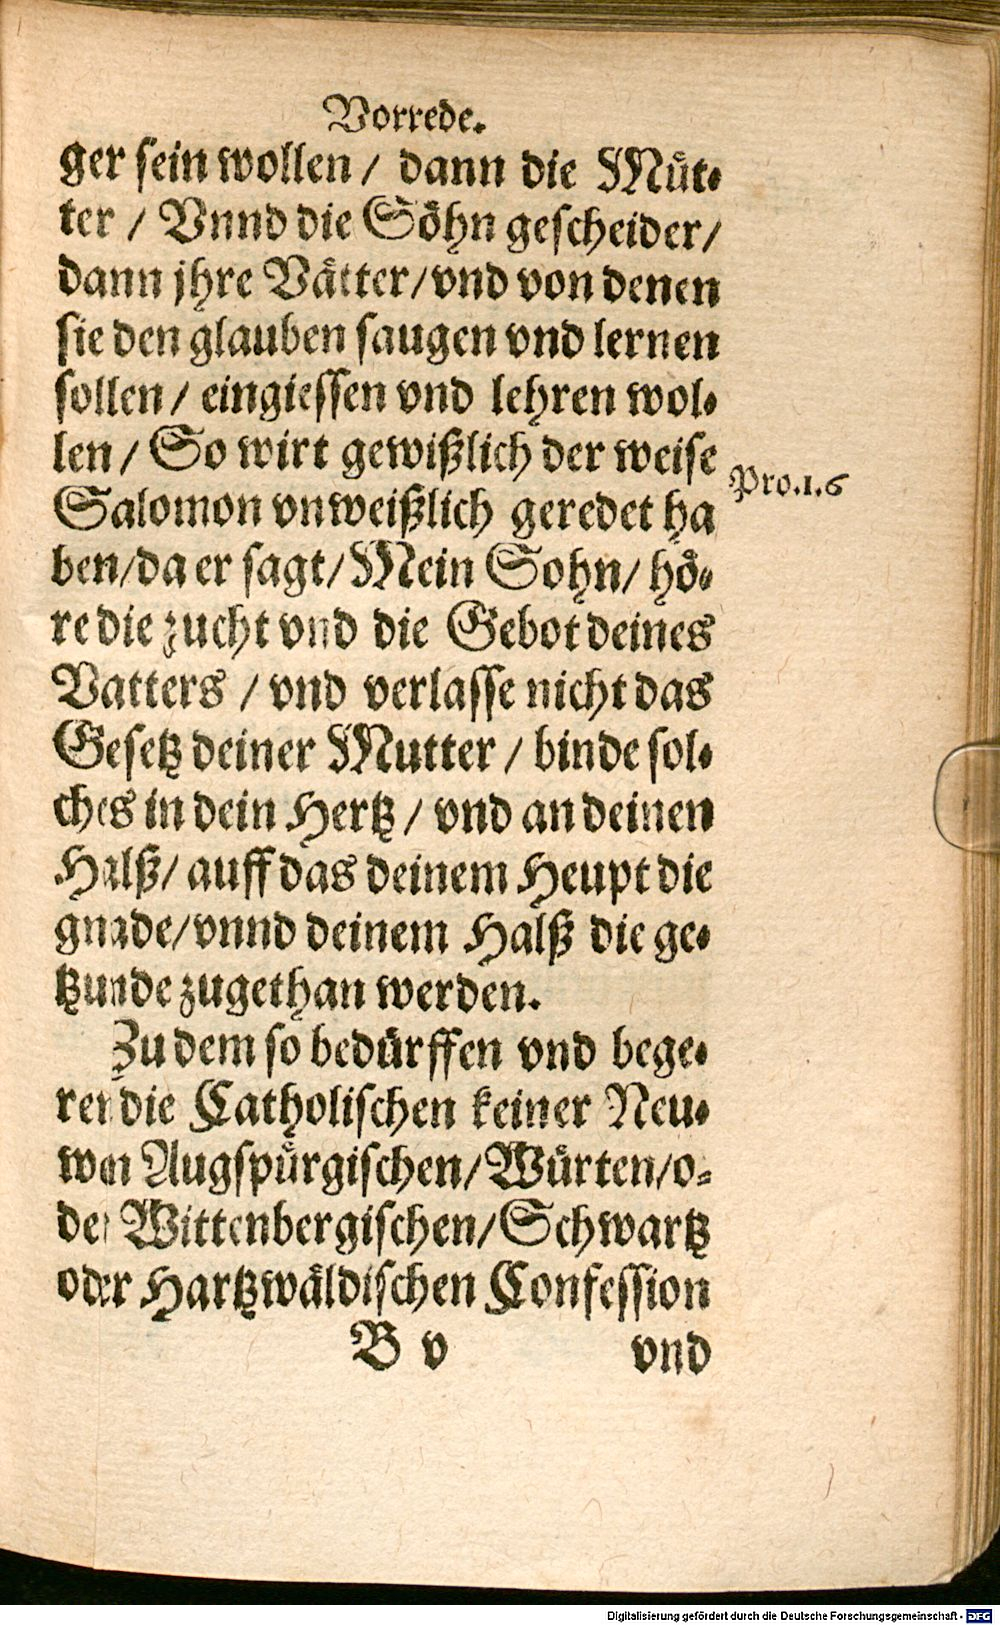 Vorrede.
ger sein wollen / dann die Müt-
ter / Vnnd die Söhn gescheider /
dann jhre Vätter / vnd von denen
sie den glauben saugen vnd lernen
sollen / eingiessen vnd lehren wol-
len / So wirt gewißlich der weise
Pro.1.6
Salomon vnweißlich geredet ha
ben / da er sagt / Mein Sohn / hö-
re die zucht vnd die Gebot deines
Vatters / vnd verlasse nicht das
Gesetz deiner Mutter / binde sol-
ches in dein Hertz / vnd an deinen
Halß / auff das deinem Heupt die
gnade / vnnd deinem Halß die ge-
tzunde zugethan werden.
Zu dem so bedürffen vnd bege-
ren die Catholischen keiner Neu-
wen Augspürgischen / Würten / o-
der Wittenbergischen / Schwartz
oder Hartzwäldischen Confession
B v
vnd
Digitalisierung gefördert durch die Deutsche Forschungsgemeinschaft - DFG